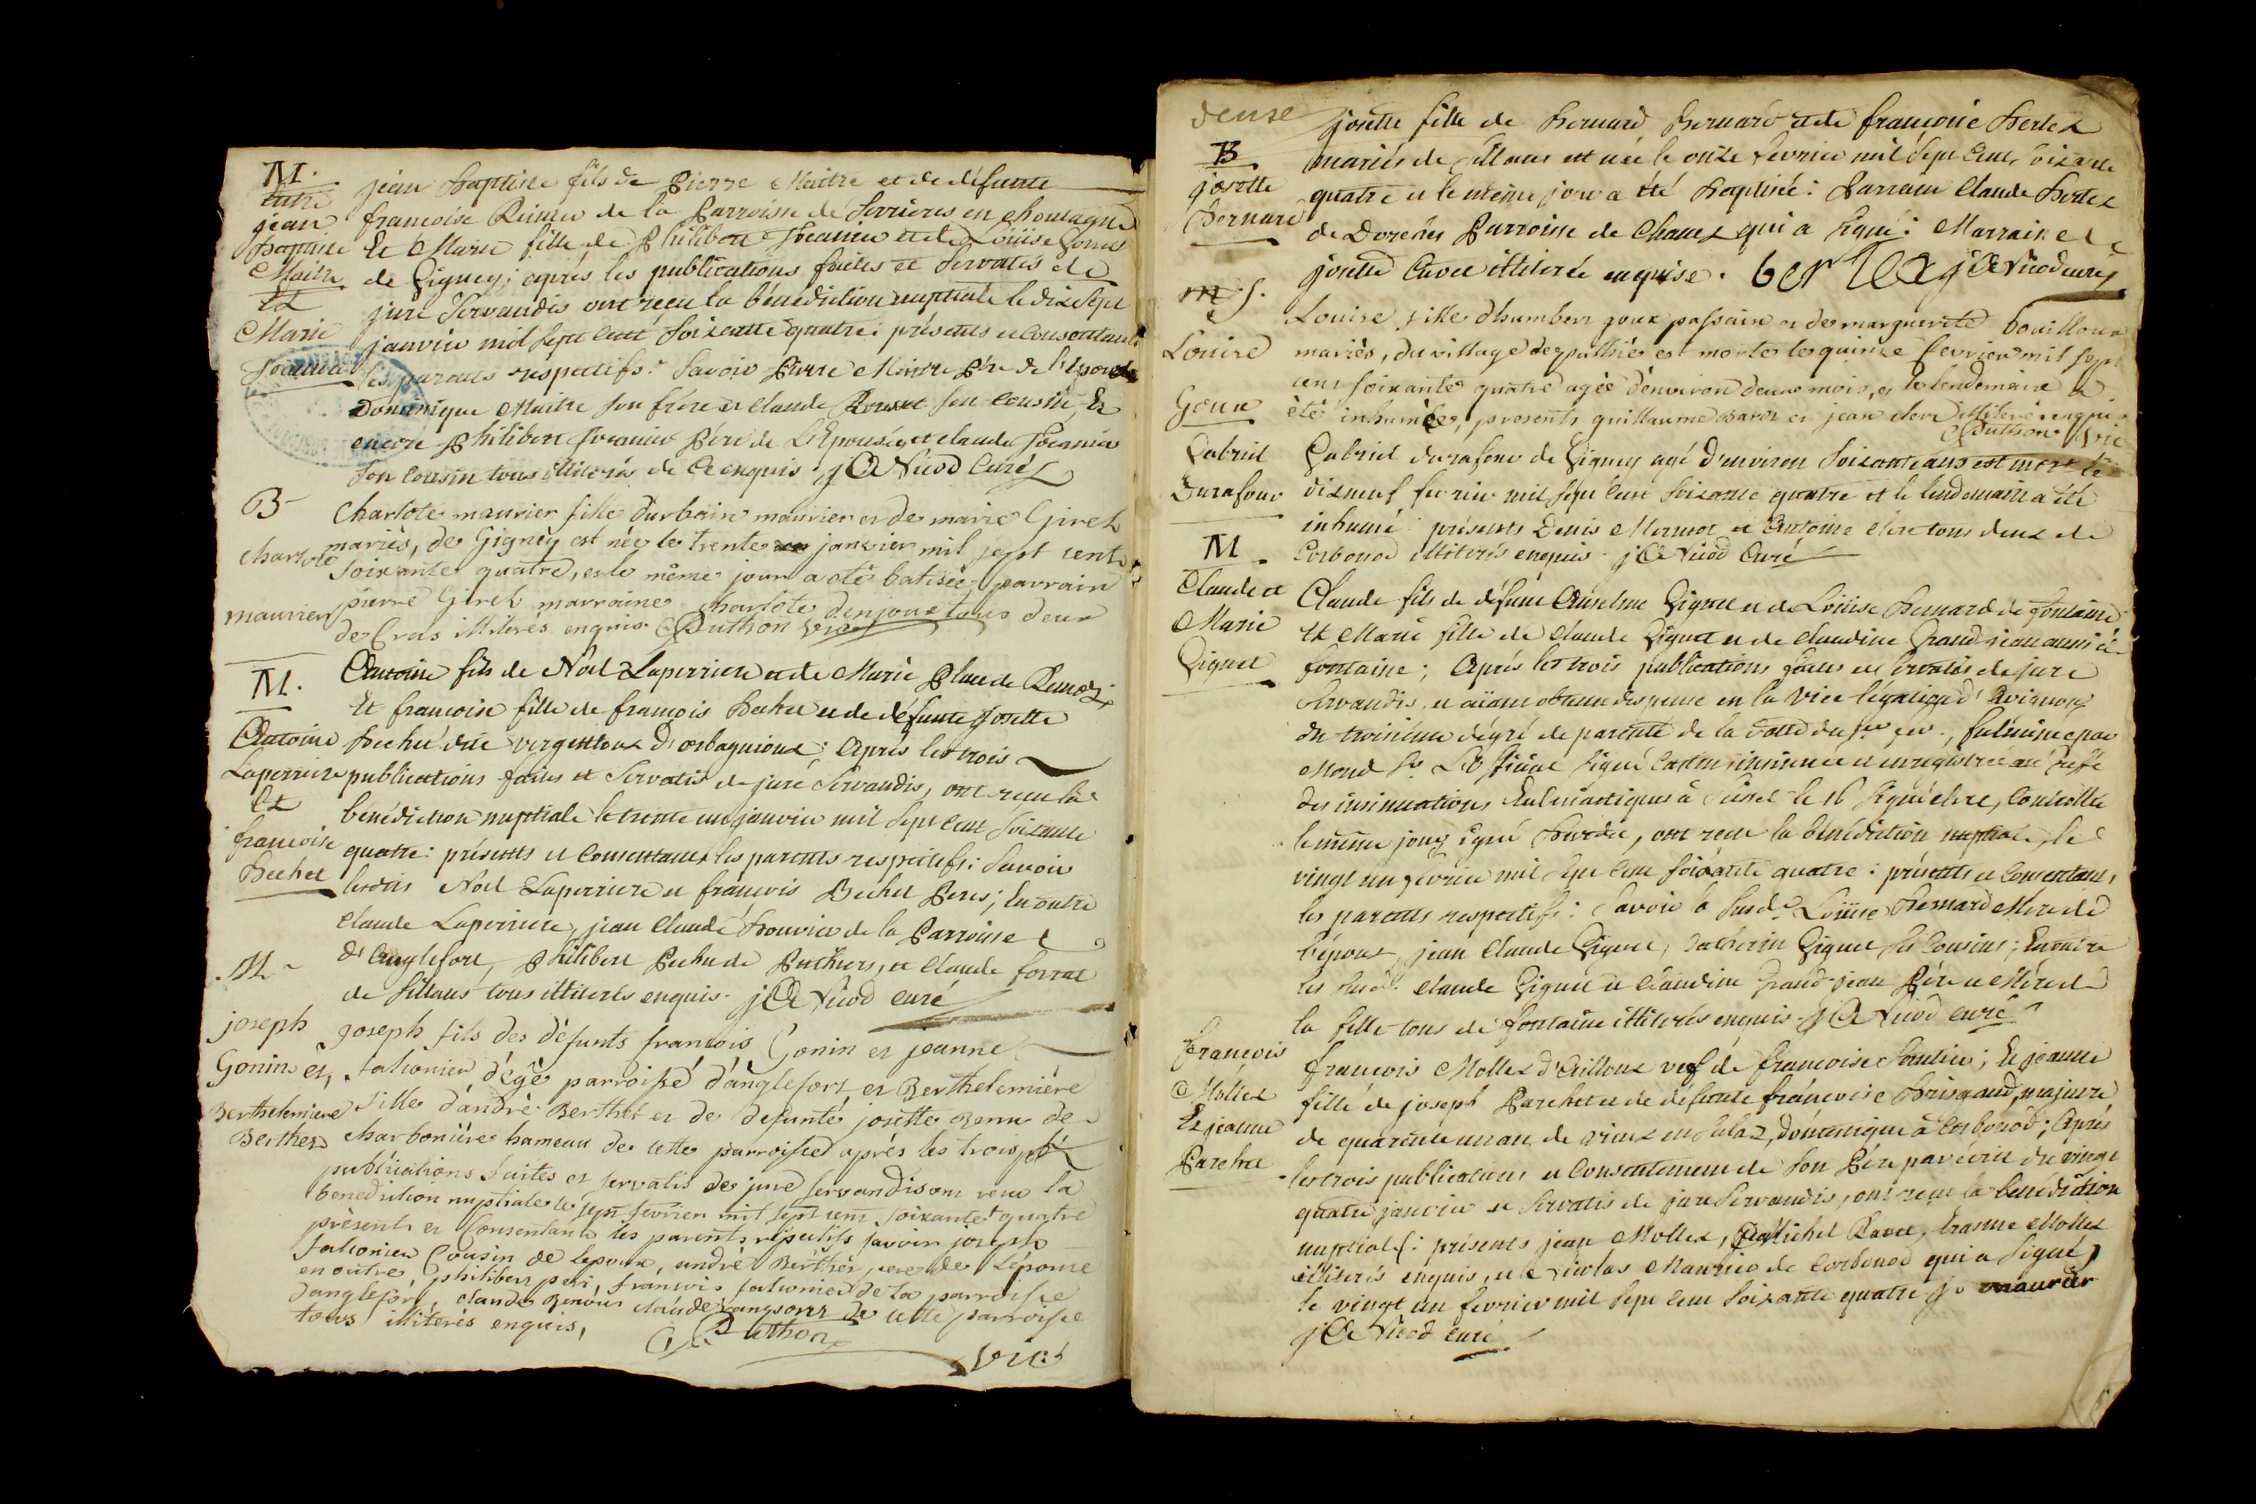 M.
entre
jean
Baptiste
Maitre
Et
Marie
jean Baptiste fils de Pierre Maitre et de défunte
francoise de la Parroisse de Serrieres en Choutagne
Et Marie fille de Philibert et de Loüise
de Gigney; aprés les publications faites et servatis de
jure Servandis ont recu la bénédiction nuptiale le dix sept
janvier mil sept cent soixante quatre: présents et consentants
les parents respectifs: Savoir Pierre Maitre Pére de l'Epoux
Dominique Maitre son frére et Claude son Cousin, Et
encore Philibert Pére de L'Epousée, et claude
son cousin tous illiterés de ce enquis. j C Nicod Curé
B
charlote
maurier
Charlote maurier fille d'urbain maurier et de marie Giret
mariès, de Gigney est née le trente janvier mil sept cent
soixante quatre, et le même jour a eté batisée, parrain
pierre Giret marraine charlote d'enjoux tous deux
de Cras illiterés enquis. Puthon vic.
M.
Antoine
Laperriere
Et
francoise
Bechet
Antoine fils de Noel Laperriere et de Marie Place de
Et francoise fille de francois Bechet et de défunte Josette
Bechet d'orbagnioux; Aprés les trois
publications faites et Servatis de jure Servandis, ont recu la
bénédiction nuptiale le trente un janvier mil sept cent soixante
quatre: présents et Consentants les parents respectifs: Savoir
lesdits Noel Laperriere et francois Bechet Peres; En outre
Claude Laperriere, jean Claude Bouvier de la Parroisse
d'Anglefort, Philibert de Puthiers, et Claude forrat
de Sillans tous illiterés enquis. j C Nicod curé
M.
joseph
Gonin et,
Berthelemiere
Berthet
joseph fils des défunts francois Gonin et jeanne
falconier d'ége parroisse d'anglefort et Berthelemiére
fille d'andrè Berthet et de defunte josette de
charboniére hameau de cette parroisse aprés les trois
publications faites et servatis de jure servandis ont recu la
benediction nuptiale le sept fevrier mil sept cent soixante quatre
prèsents et Consentants les parents respectifs savoir joseph
falconier Cousin de lepoux, andrè Berthet pere de l'épouse
en outre, philibert peri, francois falconier de la parroisse
d'anglefort, claude claude de cette parroisse
tous illiterés enquis, Puthon
vic.
dense
B
josette
Bernard
josette fille de Bernard Bernard et de francoise Bertet
mariés de Sillans est née le onze fevrier mil sept Cent soixante
quatre et le méme jour a été Baptisée: Parrain Claude Bertet
de Dorches Parroisse de Chanay qui a signé: Marraine
josette illiterée enquise. j C Nicod curé
m. s.
Louise
Goux
Louise fille d'humbert goux passaire et de marguerite
mariès, du village de est morte le quinze fevrier mil sept
cent soixante quatre agée d'environ deux mois, et le lendemain a
été inhumée, presents guillaume et jean illiteré enquis
Puthon vic
Gabriel
Durafour
Gabriel durafour de Gigney agé d'environ soixante ans est mort le
dixneuf fevrier mil sept cent soixante quatre et le lendemain a été
inhumé: présents Denis Mermet et Antoine clerc tous deux de
Corbonod illiterés enquis. j C Nicod Curé
M.
Claude et
Marie
Giguet
Claude fils de défunt Anselme Giguet et de Loüise Bernard de fontaine;
Et Marie fille de Claude Giguet et de Claudine Grand-jean aussi de
fontaine; Aprés les trois publications faites et servatis de jure
Servandis, et aïant obtenu dispense en la Vice légation d'Avignon
du troisiéme dégré de parenté de la datte du fev., fulminée par
Mond. Sr. signé insinuée et enregistrée au greffe
des insinuations Eclésiastiques à le 16 signé clerc, Controllée
le même jour signé, ont recu la bénédiction nuptiale, le
vingt un fevrier mil sept Cent soixante quatre: présents et Consentants,
les parents respectifs: Savoir la susde. Loüise Bernard Mere de
l'époux, jean Claude Giguet, Giguet ses Cousins; En outre
les susd. Claude Giguet et Claudine Grand-jean Pére et Mére de
la fille tous de fontaine illiterés enquis. j C Nicod curé
francois
Mollex
Et jeanne
francois Mollex d'Eilloux vef de francoise; Et jeanne
fille de joseph et de défunte francoise, majeure
de quarente un an de, domestique à Corbonod; Aprés
les trois publications et Consentement de son Pére par écrit du vingt
quatre janvier et Servatis de jure Servandis, ont recu la bénédiction
nuptiale: présents jean Mollex, Michel, Erasme Mollex
illiterés enquis, et Nicolas Maurier de Corbonod qui a signé,
le vingt un fevrier mil sept cent soixante quatre maurier
j C Nicod curé